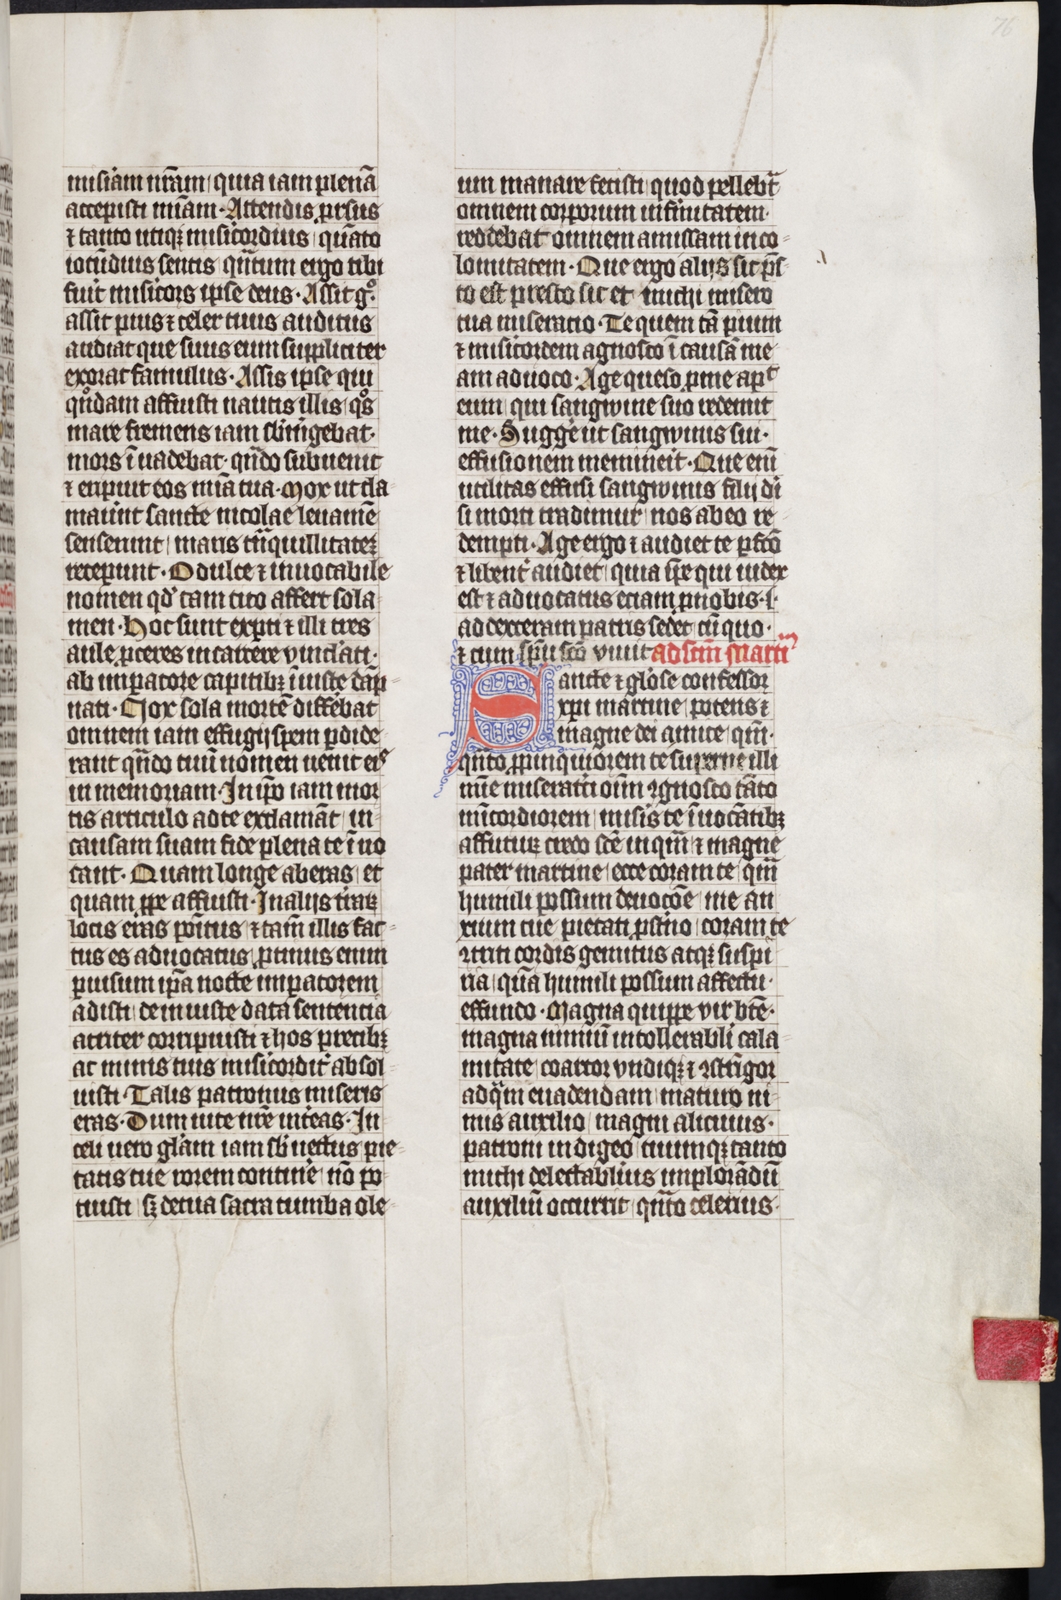 76
misiam nr̄am quia iam plenā
accepisti mīam · Attendis prsus
⁊ tanto utiqꝫ misicordius quāto
iocūdius sentis qn̄tum ergo tibi
fuit misicors ipse deus · Assit gͦ
assit pius ⁊ celer tuus auditus
audiat que suus eum suppliciter
exorat famulus · Assis ipse qui
qͦndam affuisti nautis illis qͦs
mare fremens iam sbm̄gebat ·
mors īuadebat · qn̄do subuenit
⁊ eripuit eos mīa tua · Mox ut cla
maūnt sancte nicolae leuamē
senserunt maris tn̄quillitateꝫ
receperunt · O dulce ⁊ inuocabile
nomen qd̕ tam cito affert sola
men · Hoc sunt exp̄ti ⁊ illi tres
aule ꝓceres in carcere vinclati ·
ab impatore capitibꝫ īiuste dāp
nati · Quox sola mortē diffēbat
omnem iam effugij spem pdide
rant qn̄do tuū nomen uenit eis
in memoriam · In ip̄o iam mor
tis articulo ad te exclamāt in
causam suam fide plena te ī uo
cant · Quam longe aberas et
quam ꝓpe affuisti · In alijs traꝝ
locis eras poītus ⁊ tam illis fac
tus es aduocatus ꝓtinus enim
ꝑuisum ip̄a nocte impatorem
adisti de iniuste data sentencia
acriter corripuisti ⁊ hos precibꝫ
ac minis tuis misicordit̄ absol
uisti · Talis patronus miseris
eras · Dum uite nr̄e inteas · In
celi uero glām iam sb̄uectus pie
tatis tue rorem contine nō po
tuisti sꝫ de tua sacra tumba ole
um manare fecisti quod pelleb̄t
omnem corporum infirmitatem ·
reddebat omnem amissam inco
lomitatem · Que ergo alijs sic p̄s
to est presto sit et michi misero
tua miseracio · Te quem tā pium
⁊ misicordem agnosco ī causā me
am aduoco · Age queso p̄me apt̄
eum qui sangwine suo redemit
me · Sugge ut sangwinis sui ·
effusionem memineit · Que enī
utilitas effusi sangwinis filij dī
si morti tradimur nos ab eo re
dempti · Age ergo ⁊ audiet te pfc̄o
⁊ libent̄ audiet quia sp̄e qui iudex
est ⁊ aduocatus eciam p̄nobis · I ·
ad dexteram patris sedet cū quo ·
⁊ cum sp̄u sc̄o viuit ad scm̄ marti
Sancte ⁊ glōse confessor
xp̄i martine potens ⁊
magne dei amice qm̄ ·
qn̄to ꝓpinquiorem te superne illi
mīe miseratri oīm ꝯgnosco tāto
mīcordiorem misis te ī uocātibꝫ
affuturꝫ credo sc̄e inqm̄ ⁊ magne
pater martine ecce coram te qm̄
humili possum deuocōe me an
xium tue pietati ꝓst̄no coram te
ꝯtriti cordis gemitus atqꝫ suspi
ria qūa humili possum affectu
effundo · Magna quippe vir btē ·
magna nimiū intollerabili cala
mitate coartor vndiqꝫ ⁊ ꝯstrīgor
ad qm̄ euadendam maturo ni
mis auxilio magni alicuius ·
patroni indigeo tuumqꝫ tanto
michi delectabilius implorādū
auxiliū occurrit qn̄to celerius ·